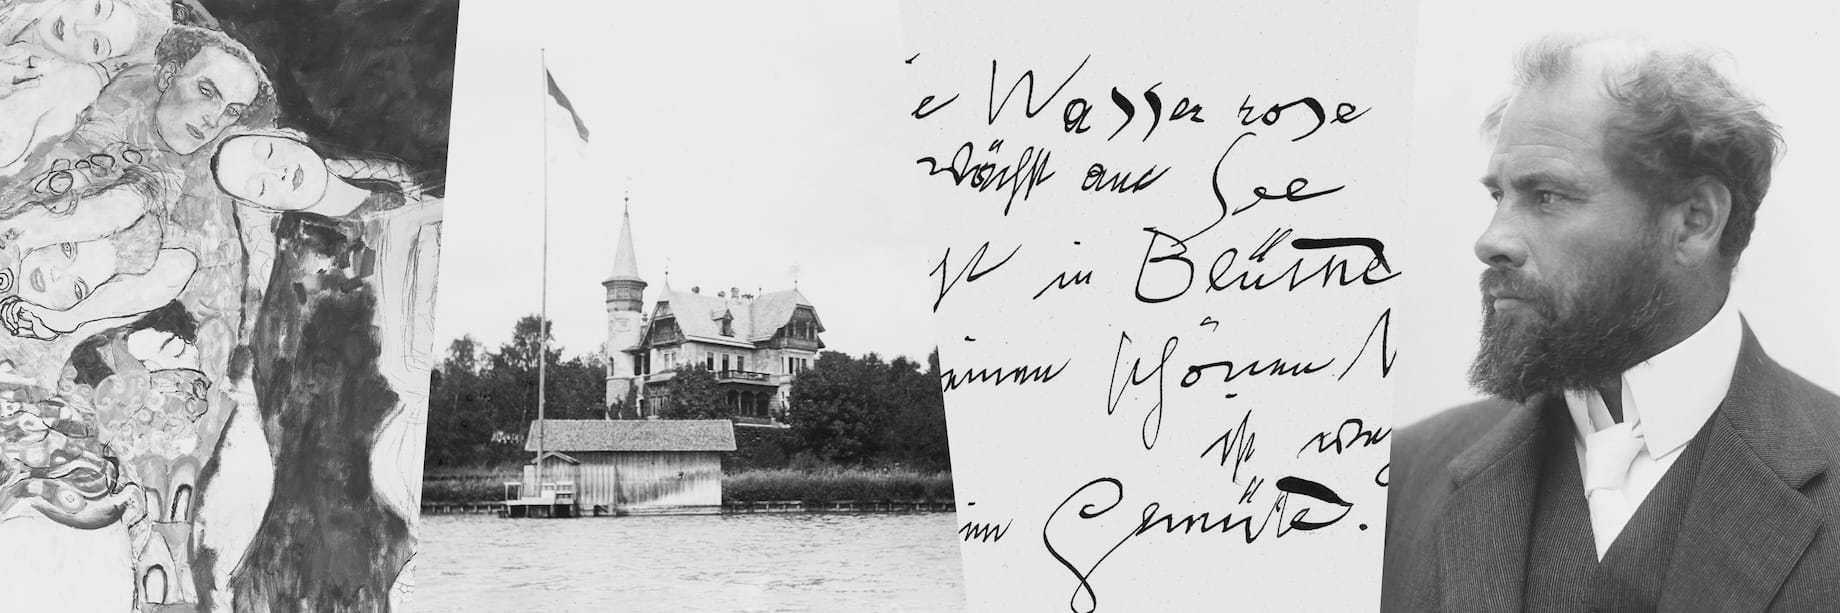 e Wasserrose
wächst am See
ht in Blüthe
einen schönen
ist weh
im Gemüthe.